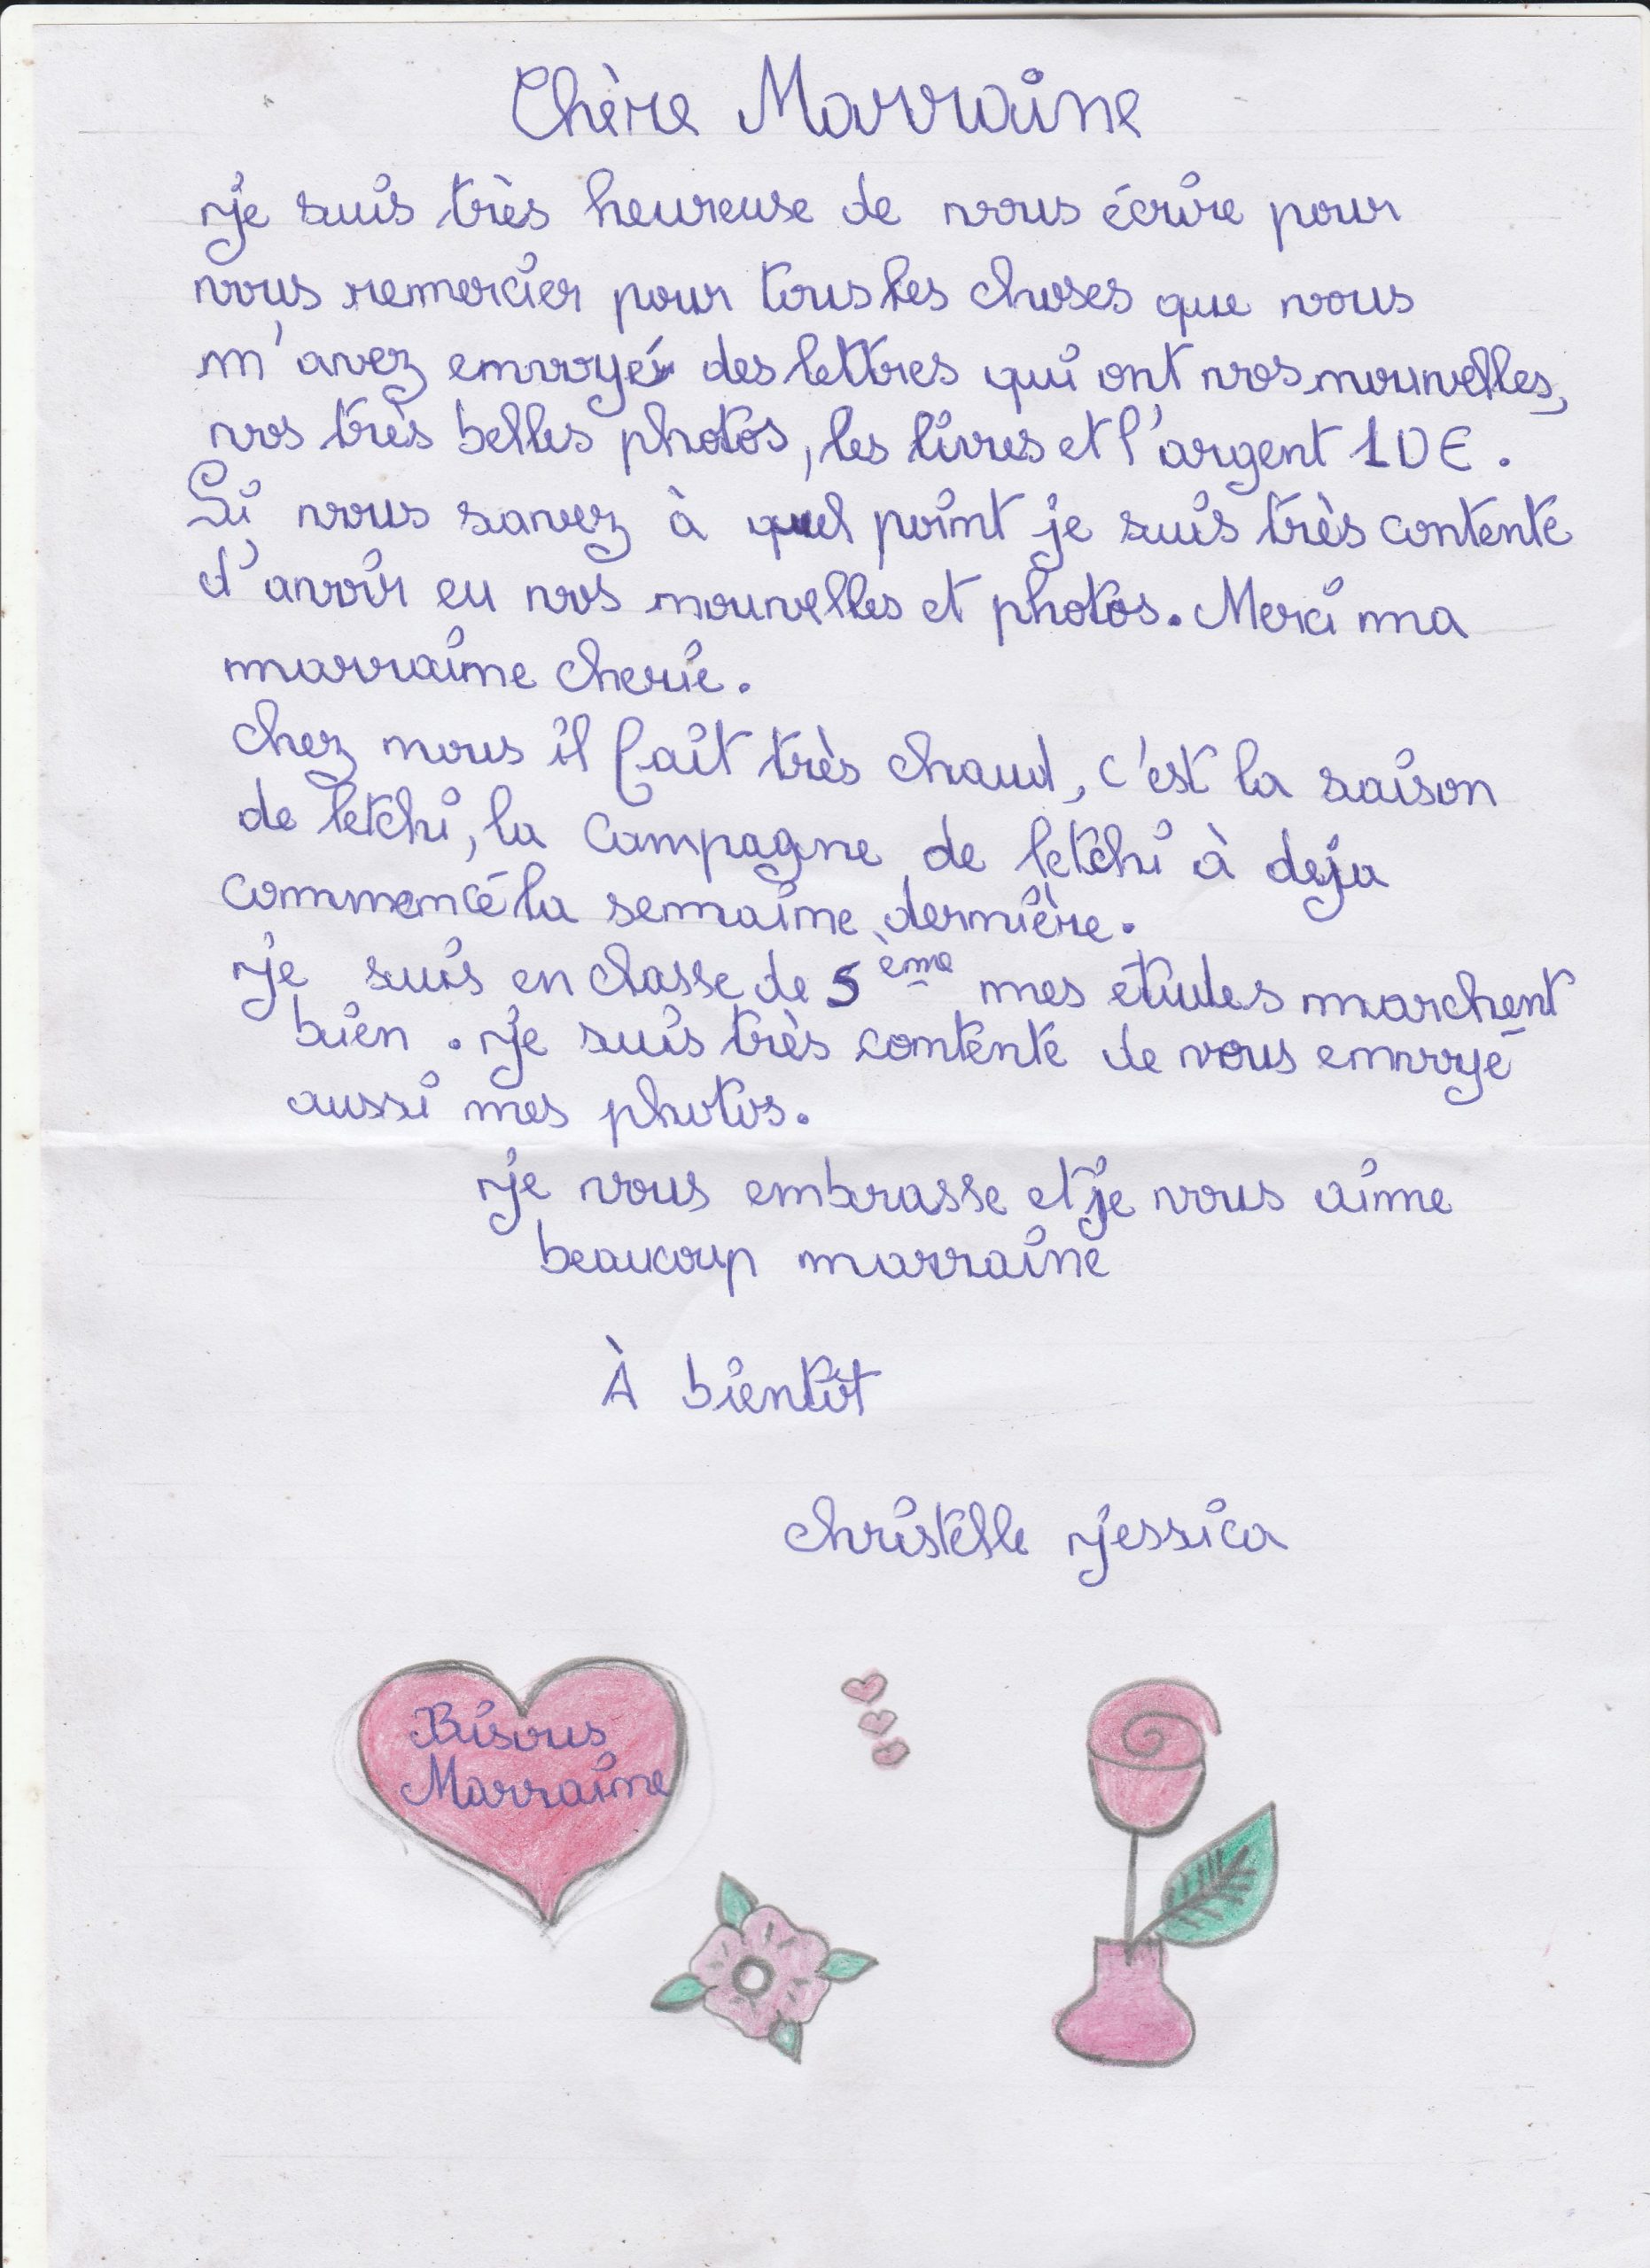 Chère Marraine
Je suis très heureuse de vous écrire pour
vous remercier pour tous les choses que vous
m'avez envoyé des lettres qui ont vos nouvelles,
vos très belles photos, les livres et l'argent 10€.
Si vous savez à quel point je suis très contente
d'avoir eu vos nouvelles et photos. Merci ma
marraine cherie.
Chez nous il fait très chaud, c'est la saison
de letchi, la campagne de letchi à deja
commencé la semaine dernière.
Je suis en classe de 5ème mes etudes marchent
bien. Je suis très contente de vous envoyé
aussi mes photos.
Je vous embrasse et je vous aime
beaucoup marraine
À bientôt
Christelle Jessica
Bisous
Marraine